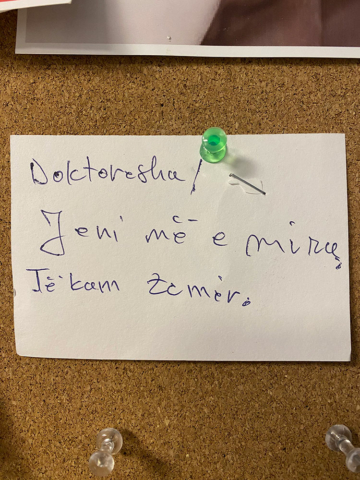 Doktoresha/
Jeni më e mira,
Të kam zemër.